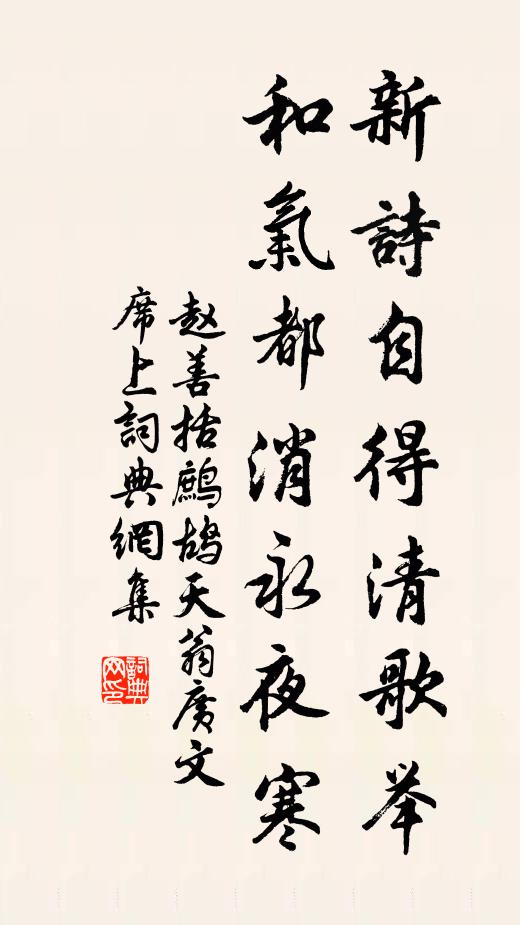 新詩自得清歌举
和氣都消永夜寒
赵善括鷓鴣天翁广文
席上詞典網集
詞典网印